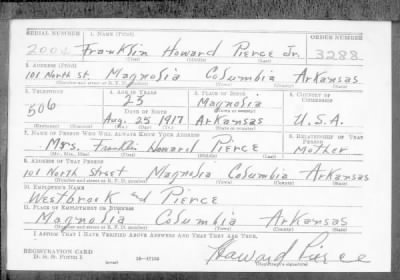 SERIAL NUMBER 1. NAME (Print) ORDER NUMBER
200 Franklin Howard Pierce Jr. 3288
(First) (Middle) (Last)
2. ADDRESS (Print)
101 North St. Magnolia Columbia Arkansas
(Number and street or R. F. D. number) (Town) (County) (State)
3. TELEPHONE 4. AGE IN YEARS 5. PLACE OF BIRTH 6. COUNTRY OF CITIZENSHIP
506 23 Magnolia
DATE OF BIRTH (Town or county)
Aug. 25 1917 Arkansas U.S.A.
(Exchange) (Number) (Mo.) (Day) (Yr.) (State or country)
7. NAME OF PERSON WHO WILL ALWAYS KNOW YOUR ADDRESS 8. RELATIONSHIP OF THAT PERSON
Mrs. Franklin Howard Pierce Mother
(Mr., Mrs., Miss) (First) (Middle) (Last)
9. ADDRESS OF THAT PERSON
101 North Street Magnolia Columbia Arkansas
(Number and street or R. F. D. number) (Town) (County) (State)
10. EMPLOYER'S NAME
Westbrook and Pierce
11. PLACE OF EMPLOYMENT OR BUSINESS
Magnolia Columbia Arkansas
(Number and street or R. F. D. number) (Town) (County) (State)
I AFFIRM THAT I HAVE VERIFIED ABOVE ANSWERS AND THAT THEY ARE TRUE.
REGISTRATION CARD
D. S. S. Form 1
Howard Pierce
(Registrant's signature)